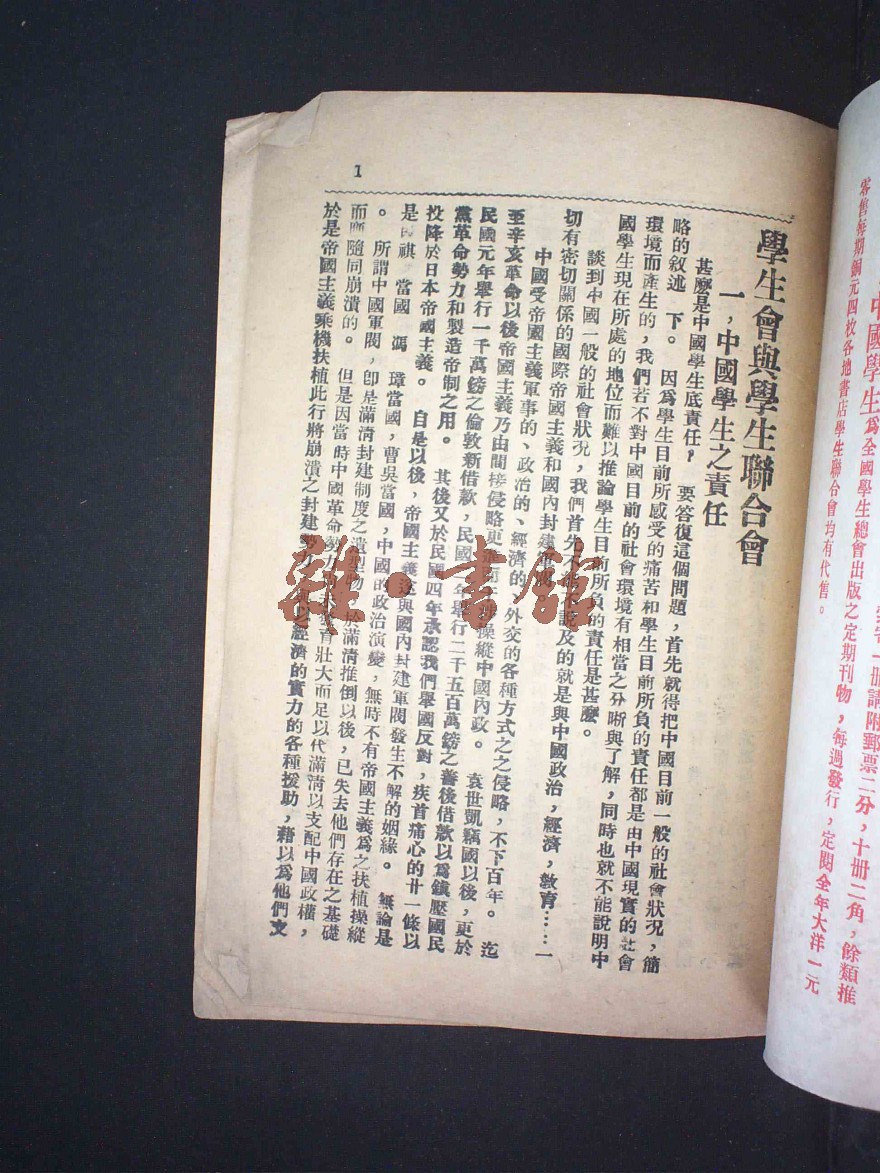 中國學生爲全國學生總會出版之定期刊物，每週發行，定閱全年大洋一元
零售每期銅元四枚各地書店學生聯合會均有代售。
一册請附郵票二分，十册二角，餘類推
學生會與學生聯合會
一，中國學生之責任
甚麼是中國學生底責任？　要答復這個問題，首先就得把中國目前一般的社會狀況，簡
略的敘述　下。　因爲學生目前所感受的痛苦和學生目前所負的責任都是由中國現實的社會
環境而產生的，我們若不對中國目前的社會環境有相當之分晰與了解，同時也就不能說明中
國學生現在所處的地位而難以推論學生目前所負的責任是甚麼。
談到中國一般的社會狀況，我們首先不能不說及的就是與中國政治，經濟，教育……一
切有密切關係的國際帝國主義和國內封建軍閥。
中國受帝國主義軍事的、政治的、經濟的、外交的各種方式之之侵略，不下百年。　迄
至辛亥革命以後帝國主義乃由間接侵略更進而操縱中國內政。　袁世凱竊國以後，更於
民國元年舉行一千萬鎊之倫敦新借款，民國二年舉行二千五百萬鎊之善後借款以爲鎮壓國民
黨革命勢力和製造帝制之用。　其後又於民國四年承認我們舉國反對，疾首痛心的廿一條以
投降於日本帝國主義。　自是以後，帝國主義遂與國內封建軍閥發生不解的姻緣。　無論是
是　祺　當國　馮　璋當國，曹吳當國，中國的政治演變，無時不有帝國主義爲之扶植操縱
。　所謂中國軍閥，卽是滿清封建制度之遺型物，於滿清推倒以後，已失去他們存在之基礎
而　隨同崩潰的。　但是因當時中國革命勢力　未發育壯大而足以代滿清以支配中國政權，
於是帝國主義乘機扶植此行將崩潰之封建勢力，　以經濟的實力的各種援助，藉以爲他們支
1
雜·書館